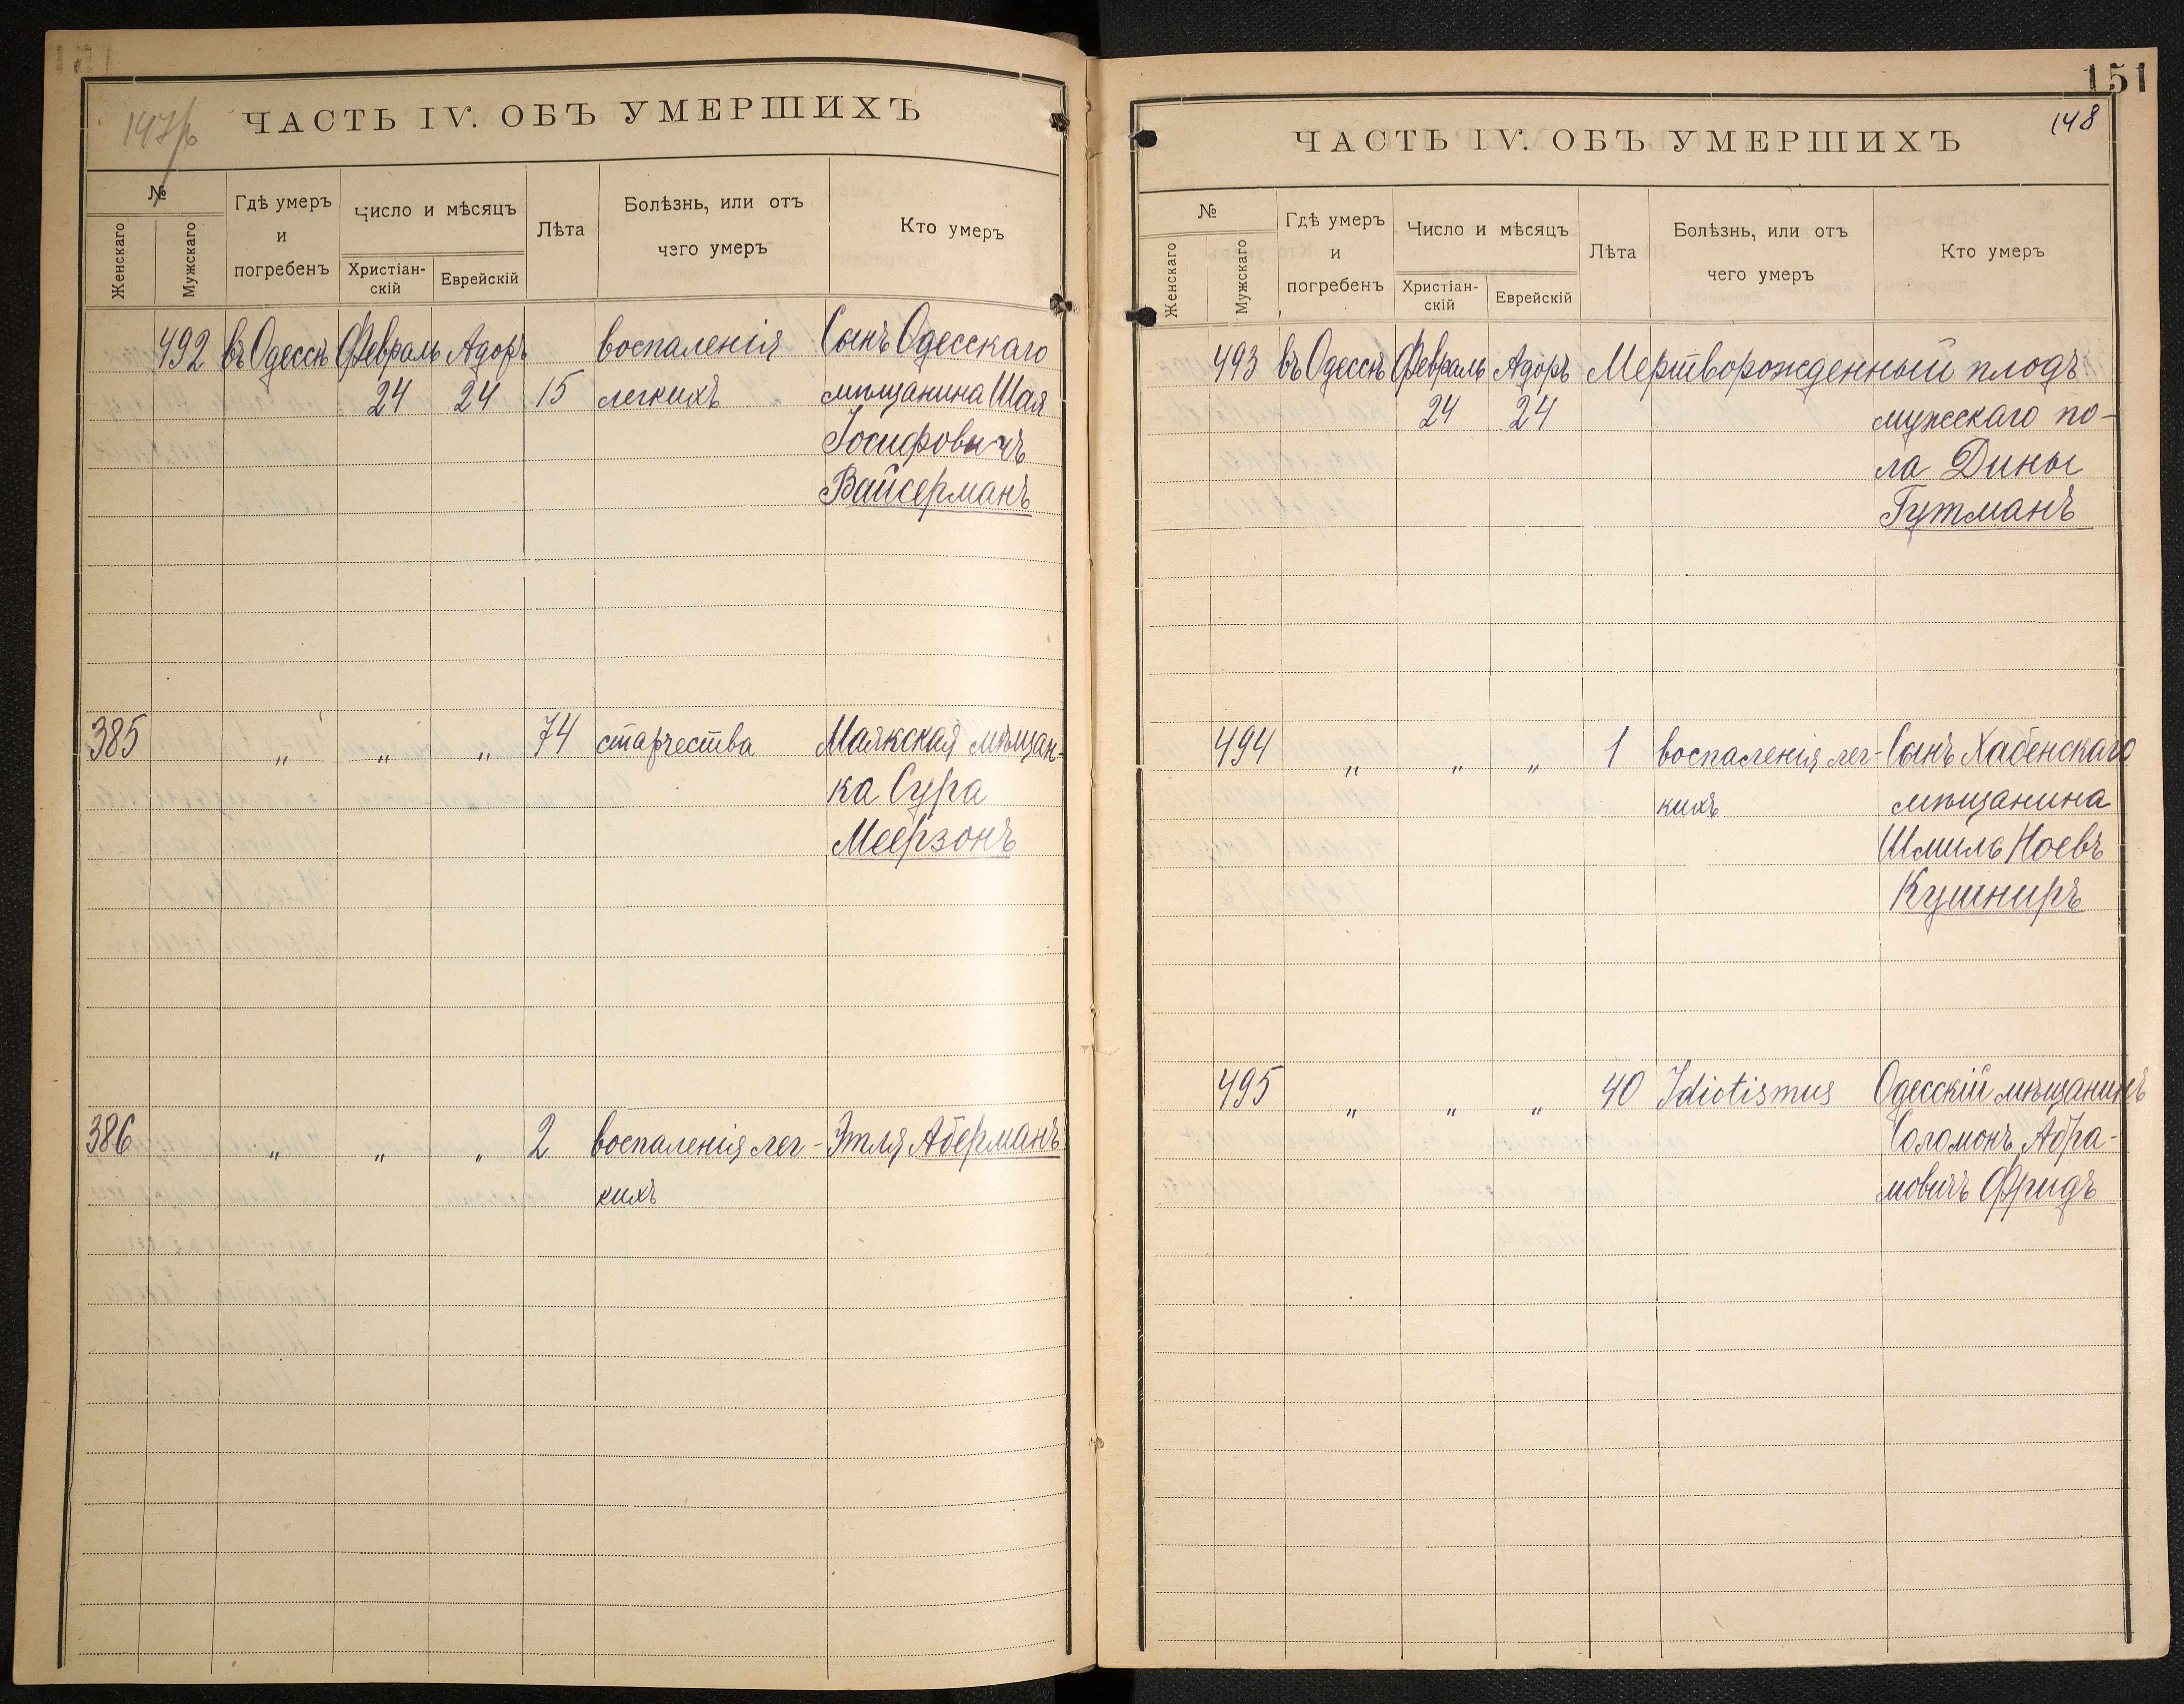 147/б
ЧАСТЬ IV. ОБЪ УМЕРШИХЪ
№
Женскаго
Мужскаго
Гдѣ умеръ
и
погребенъ
Число и мѣсяцъ
Христіан-
скій
Еврейскій
Лѣта
Болѣзнь, или отъ
чего умеръ
Кто умеръ
492 въ Одессѣ Февраль Адоръ воспаленія Сынъ Одесскаго
24 24 15 легкихъ мѣщанина Шая
Іосифовичъ
Вайсерманъ
385 „ „ „ 74 старчества Маякская мѣщан-
ка Сура
Меерзонъ
386 „ „ „ 2 воспаленія лег- Этля Аберманъ
кихъ
151
148
ЧАСТЬ IV. ОБЪ УМЕРШИХЪ
№
Женскаго
Мужскаго
Гдѣ умеръ
и
погребенъ
Число и мѣсяцъ
Христіан-
скій
Еврейскій
Лѣта
Болѣзнь, или отъ
чего умеръ
Кто умеръ
493 въ Одессѣ Февраль Адоръ Мертворожденный плодъ
24 24 мужескаго по-
ла Дины
Гутманъ
494 „ „ „ 1 воспаленія лег- Сынъ Хабенскаго
кихъ мѣщанина
Шмиль Ноевъ
Кушниръ
495 „ „ „ 40 Idiotismus Одесскій мѣщанинъ
Соломонъ Абра-
мовичъ Фридъ